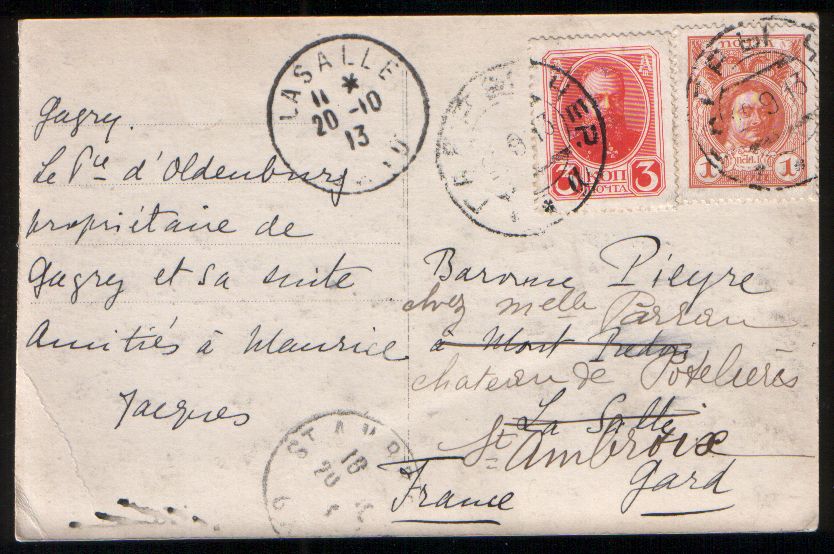 Gagry.
Le Pce d'Oldenburg
propriétaire de
Gagry et sa suite
Amitiés à Maurice
Jacques
LASALLE
11
20-10
13
3 КОП 3
ПОЧТА
1 1
ГАГРЫ ЧЕР.
13
ГАГРЫ
13
Baronne Pieyre
chez Melle Parran
à Mont Redon
chateau de Potelières
La Salle
St Ambroix
Gard
France
ST AMBR
18
20